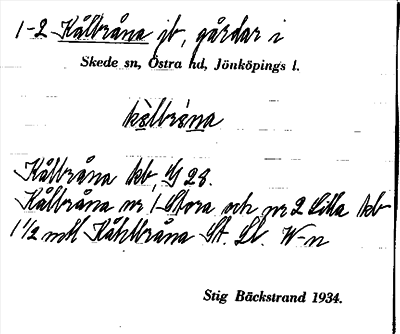 1-2 Kålbråna jb, gårdar i
Skede sn, Östra hd, Jönköpings l.
kålbråna
Kålbråna kb 28.
Kålbråna nr 1 Stora och nr 2 Lilla kb
1 1/2 mtl Kåhlbråna St. Ll. W-n
Stig Bäckstrand 1934.